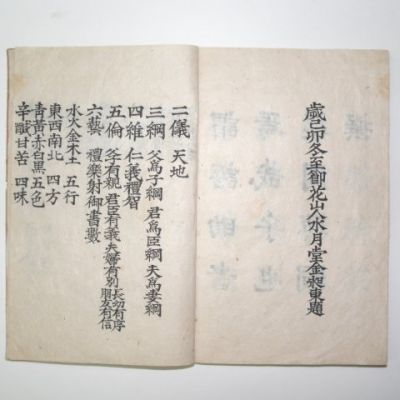 歲己卯冬至御花山人水月堂金昶東題
二儀 天地
三綱 父爲子綱 君爲臣綱 夫爲妻綱
四維 仁義禮智
五倫 父子有親 君臣有義 夫婦有別 長幼有序 朋友有信
六藝 禮樂射御書數
水火金木土 五行
東西南北 四方
靑黃赤白黑 五色
辛鹹甘苦 四味